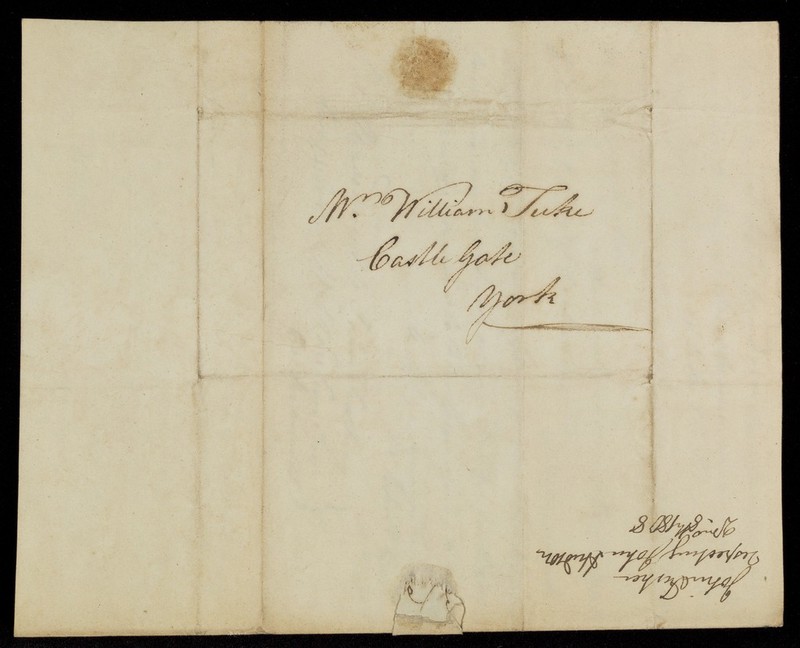 Mr. William Tuke
Castle Gate
York
John Fisher
respecting John Hudson
2 mo 8th 1808